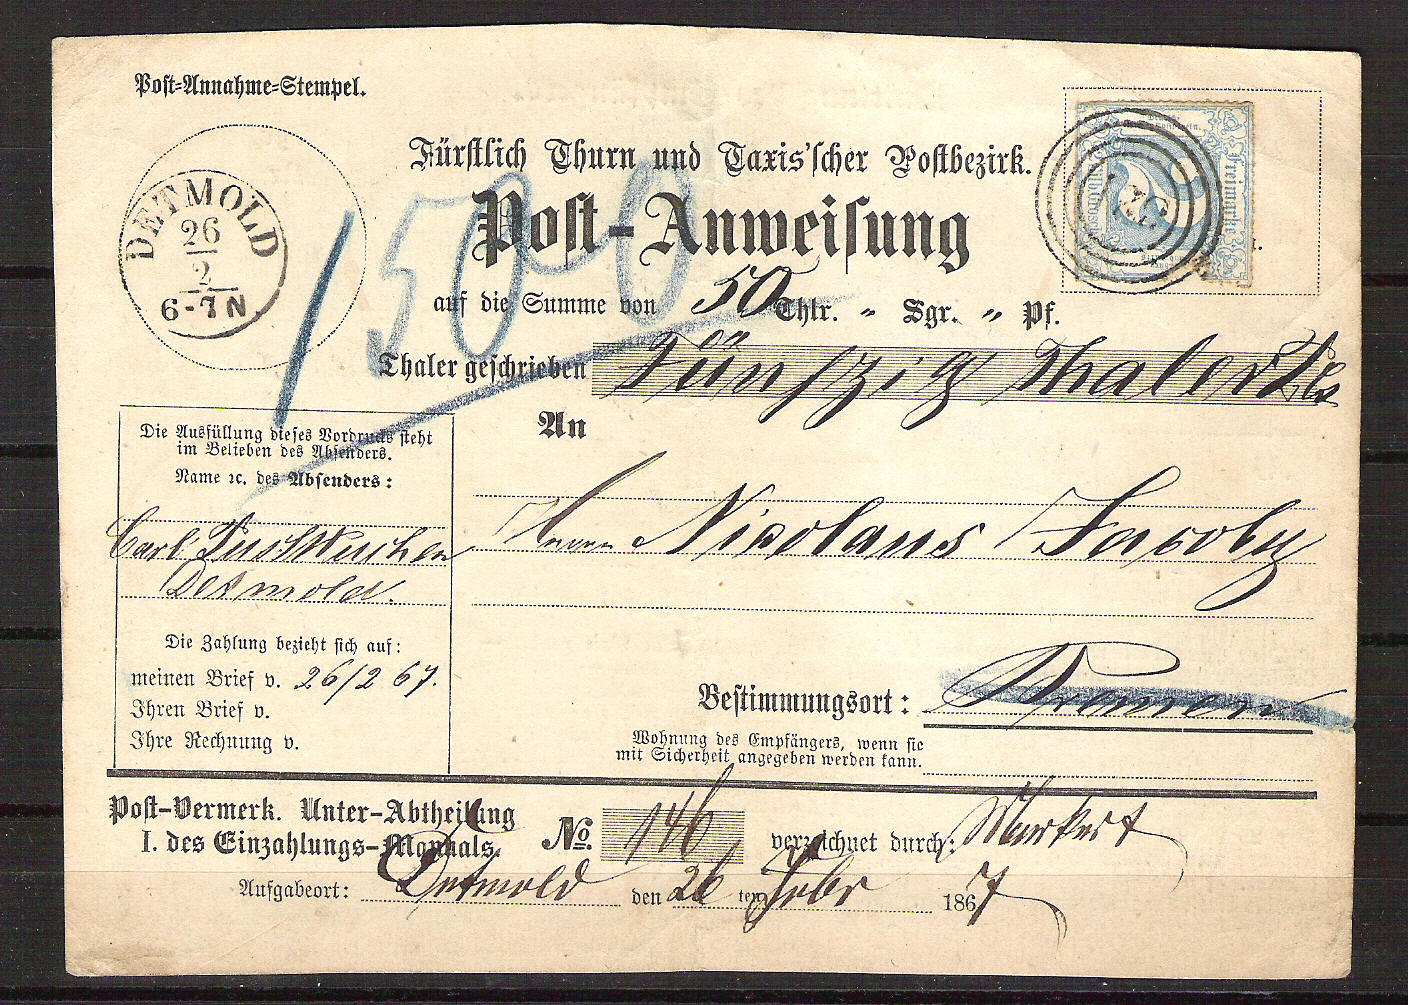 Post-Annahme-Stempel.
DETMOLD
26
2
6-7 N
Fürstlich Thurn und Taxis'scher Postbezirk.
Post-Anweisung
150-0
auf die Summe von 50 Thlr. " Sgr. " Pf.
Thaler geschrieben Fünfzig Thaler
An
Herrn Nicolaus Jacoby
Bestimmungsort: Bremen
Wohnung des Empfängers, wenn sie
mit Sicherheit angegeben werden kann.
Freimarke
2
Die Ausfüllung dieses Vordrucks steht
im Belieben des Absenders.
Name ꝛc. des Absenders:
Carl Pustkuchen
Detmold.
Die Zahlung bezieht sich auf:
meinen Brief v. 26/2 67.
Ihren Brief v.
Ihre Rechnung v.
Post-Vermerk. Unter-Abtheilung
I. des Einzahlungs-Manuals. No. 146 verzeichnet durch: Markert
Aufgabeort: Detmold den 26 ten Febr 1867